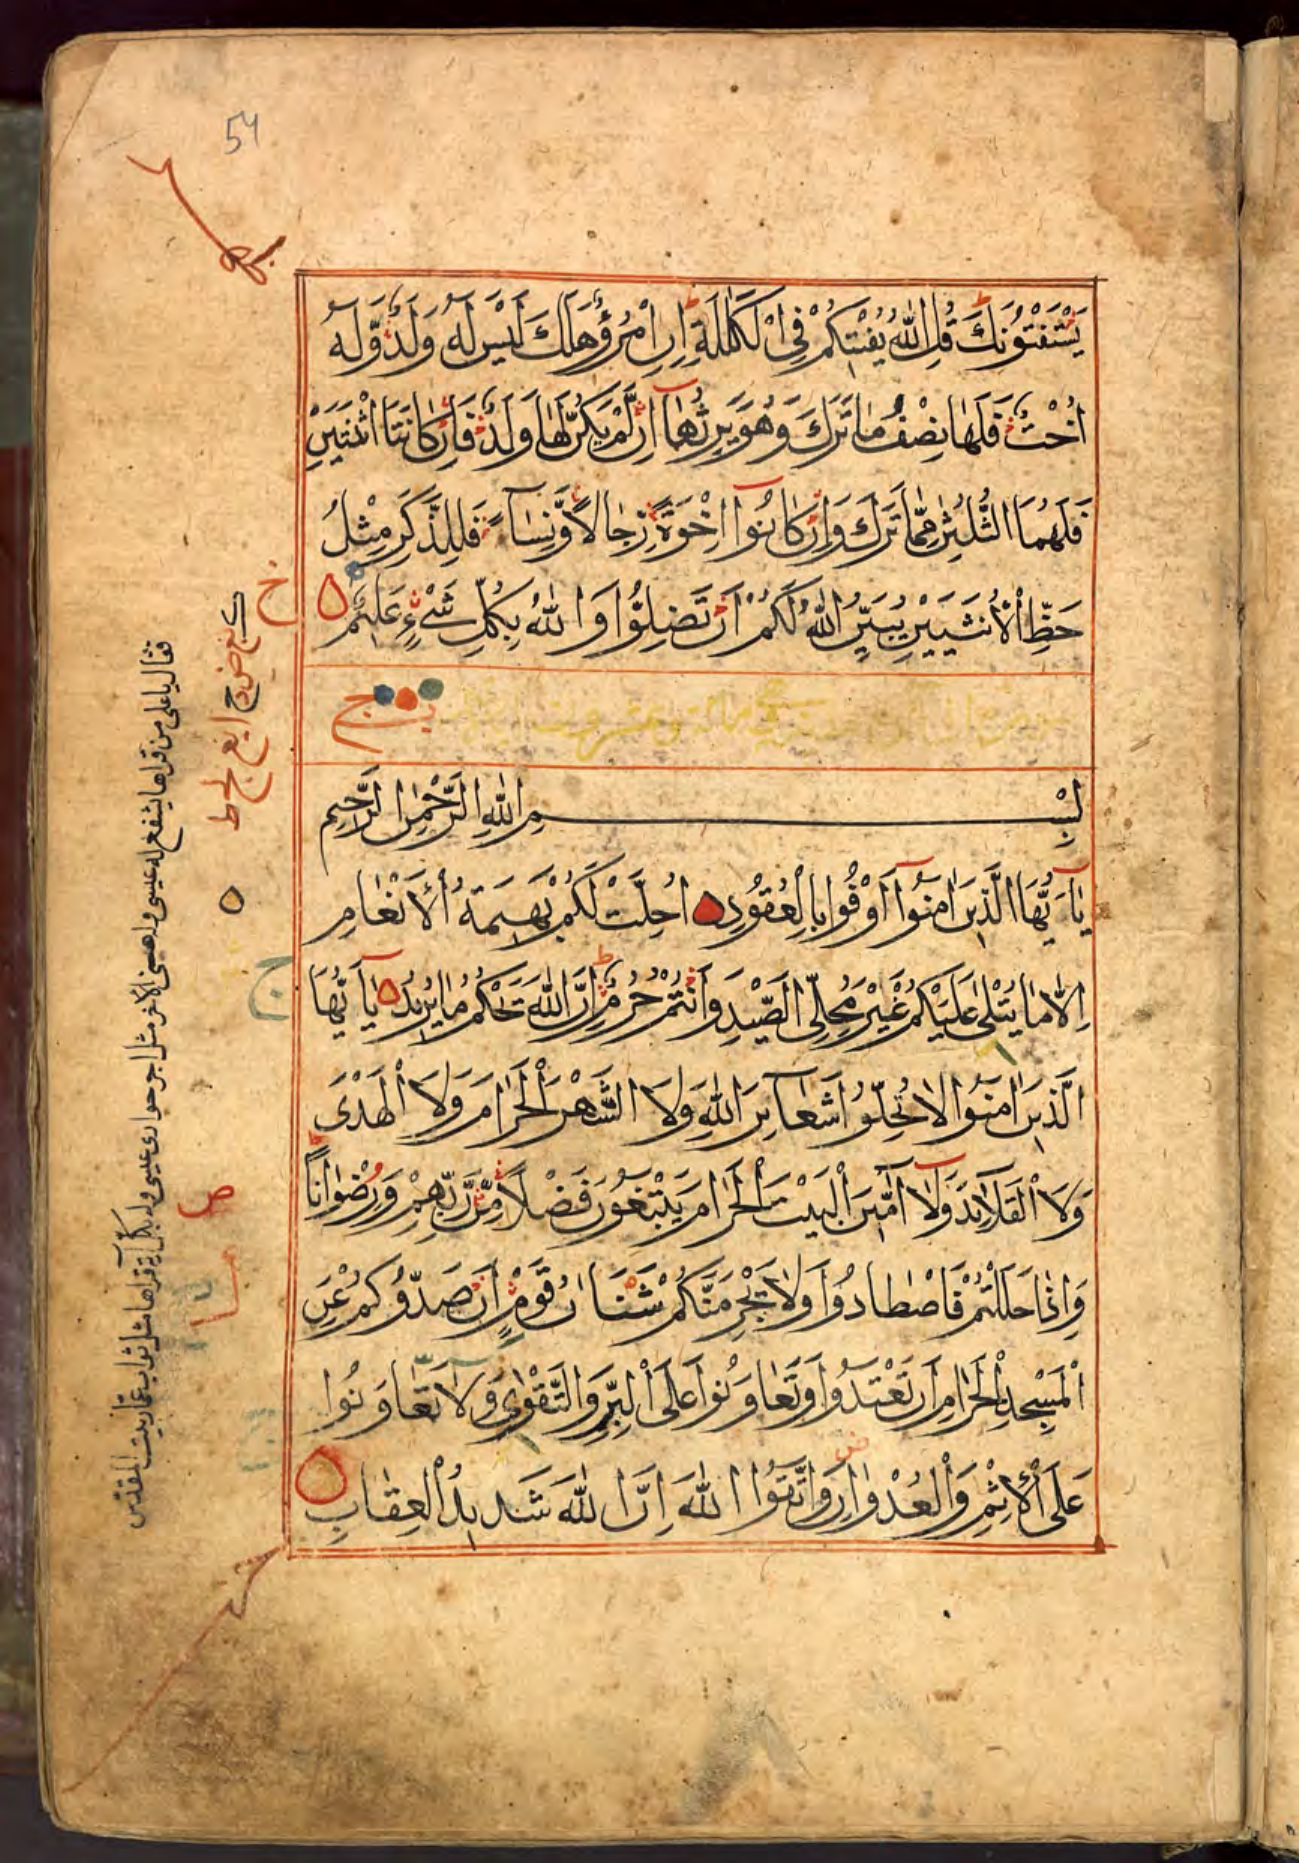 54
يَسْتَفْتُونَكَ قُلِ اللّٰهُ يُفْتِيكُمْ فِى الْكَلٰلَةِ اِنِ امْرُؤٌ هَلَكَ لَيْسَ لَهُ وَلَدٌ وَّلَهُ
اُخْتٌ فَلَهَا نِصْفُ مَا تَرَكَ وَهُوَ يَرِثُهَآ اِنْ لَّمْ يَكُنْ لَّهَا وَلَدٌ فَاِنْ كَانَتَا اثْنَتَيْنِ
فَلَهُمَا الثُّلُثٰنِ مِمَّا تَرَكَ وَاِنْ كَانُوٓا اِخْوَةً رِّجَالًا وَّنِسَآءً فَلِلذَّكَرِ مِثْلُ
حَظِّ الْاُنْثَيَيْنِ يُبَيِّنُ اللّٰهُ لَكُمْ اَنْ تَضِلُّوْا وَاللّٰهُ بِكُلِّ شَىْءٍ عَلِيْمٌ
بِسْمِ اللّٰهِ الرَّحْمٰنِ الرَّحِيْمِ
يٰٓاَيُّهَا الَّذِيْنَ اٰمَنُوْٓا اَوْفُوْا بِالْعُقُوْدِ اُحِلَّتْ لَكُمْ بَهِيْمَةُ الْاَنْعَامِ
اِلَّا مَا يُتْلٰى عَلَيْكُمْ غَيْرَ مُحِلِّى الصَّيْدِ وَاَنْتُمْ حُرُمٌ اِنَّ اللّٰهَ يَحْكُمُ مَا يُرِيْدُ يٰٓاَيُّهَا
الَّذِيْنَ اٰمَنُوْا لَا تُحِلُّوْا شَعَآئِرَ اللّٰهِ وَلَا الشَّهْرَ الْحَرَامَ وَلَا الْهَدْىَ
وَلَا الْقَلَآئِدَ وَلَآ اٰمِّيْنَ الْبَيْتَ الْحَرَامَ يَبْتَغُوْنَ فَضْلًا مِّنْ رَّبِّهِمْ وَرِضْوَانًا
وَاِذَا حَلَلْتُمْ فَاصْطَادُوْا وَلَا يَجْرِمَنَّكُمْ شَنَاٰنُ قَوْمٍ اَنْ صَدُّوْكُمْ عَنِ
الْمَسْجِدِ الْحَرَامِ اَنْ تَعْتَدُوْا وَتَعَاوَنُوْا عَلَى الْبِرِّ وَالتَّقْوٰى وَلَا تَعَاوَنُوْا
عَلَى الْاِثْمِ وَالْعُدْوَانِ وَاتَّقُوا اللّٰهَ اِنَّ اللّٰهَ شَدِيْدُ الْعِقَابِ
فقال يا على من قراها يشفع له عيسى